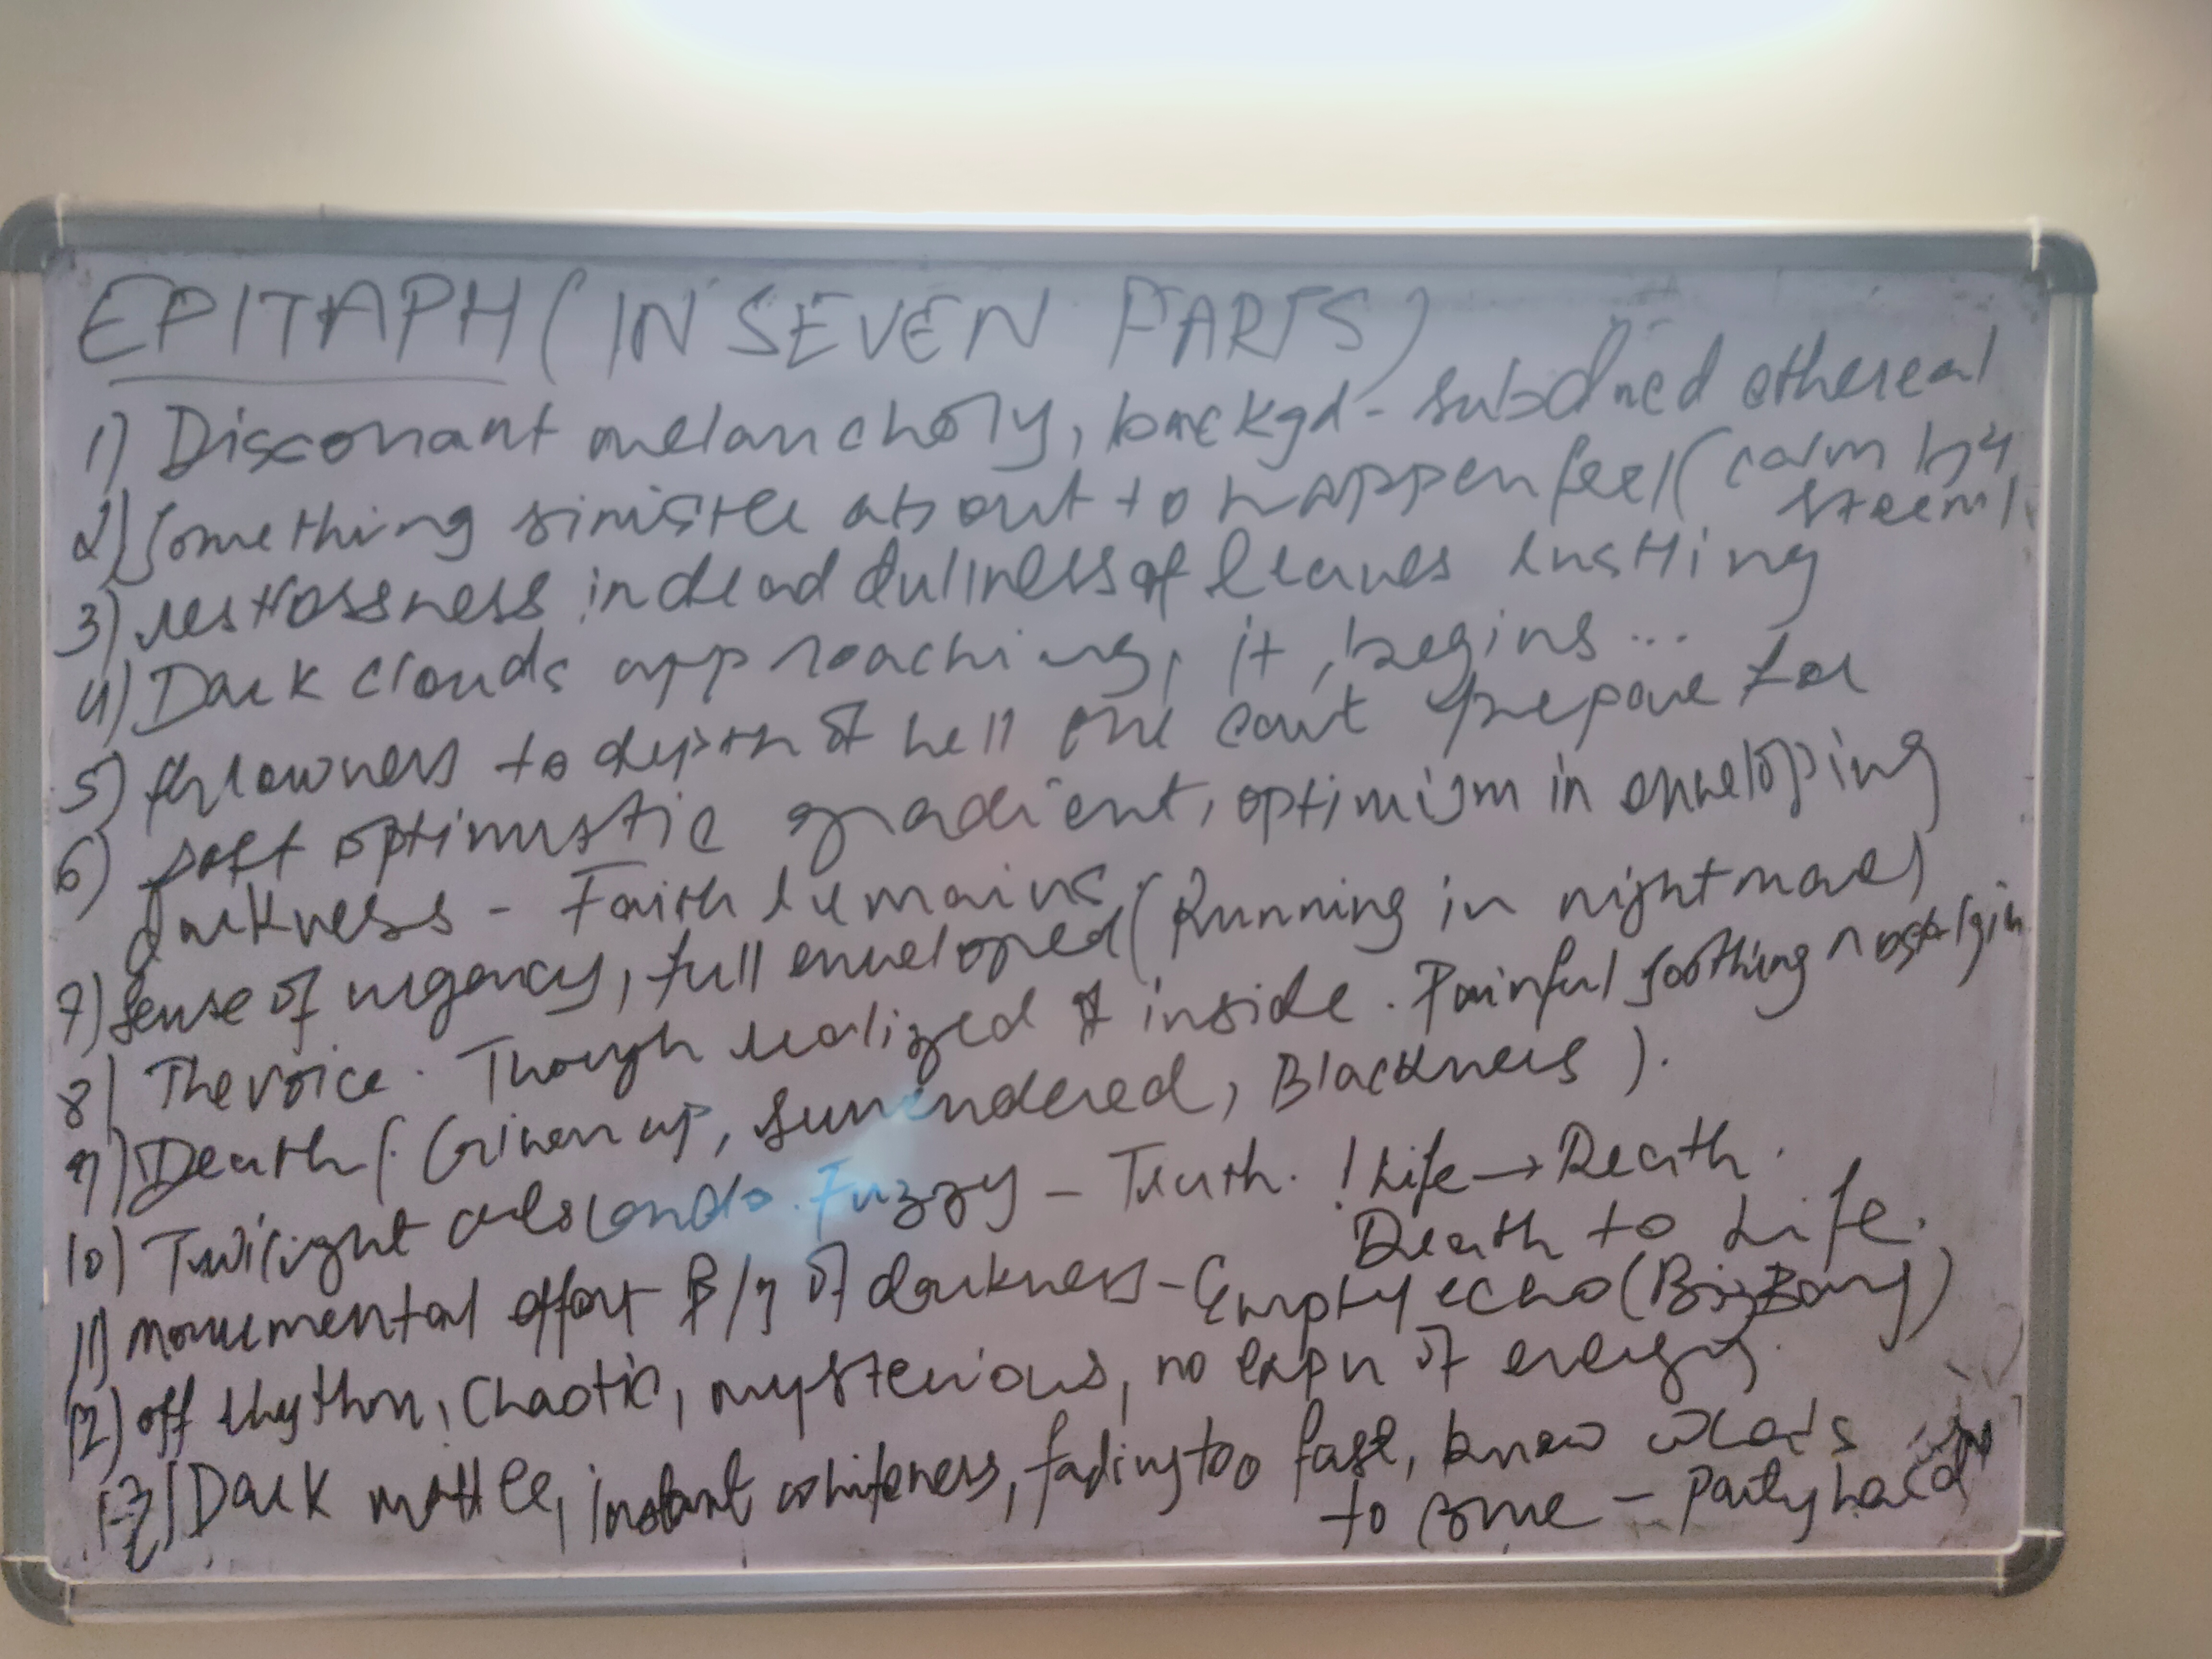 EPITAPH (IN SEVEN PARTS)
1) Dissonant melancholy, backgd - subdued ethereal
2) Something sinister about to happen feel (calm b4
storm).
3) restlessness in dead dullness of leaves rustling
4) Dark clouds approaching, it begins...
5) to depth of hell one cant prepare for
6) soft optimistic gradient, optimism in enveloping
darkness - Faith remains.
7) Sense of urgency, full enveloped (Running in nightmare)
8) The voice. Though realized inside. Painful soothing nostalgia
9) Death (Given up, surrendered, Blackness).
10) Twilight Fuzzy - Truth. ! Life → Death.
Death to Life.
11) monumental effort of darkness - Empty echo (Big Bang)
12) off rhythm, chaotic, mysterious, no expn of energy.
13) Dark matter, instant whiteness, fading too fast, know whats
to come - Party hard